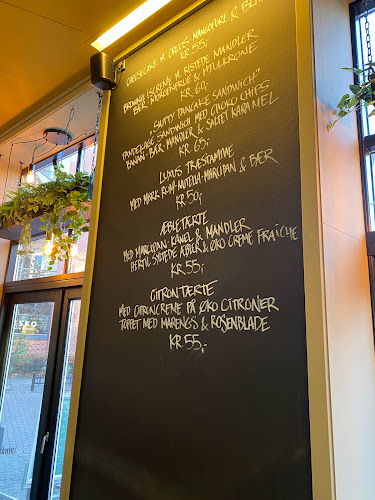 CHEESECAKE M. OREOS, MANGOPURE & BÆR
KR 55,-
BROWNIE ISCREME M. RISTEDE MANDLER
BÆR, HINDBÆRPURE & HJULKRONE
KR 60,-
"SLUTTY PANCAKE SANDWICH"
PANDEKAGE SANDWICH MED CHOKO CHIPS
BANAN-BÆR-MANDLER & SALTET KARAMEL
KR 69,-
LUXUS TRESTAMME
MED MØRK ROM-NUTELLA-MARCIPAN & BÆR
KR 50,-
ÆBLETÆRTE
MED MARCIPAN KANEL & MANDLER
HERTIL SYLTEDE ÆBLER & ØKO CREME FRAÎCHE
KR 55,-
CITRONTÆRTE
MED CITRONCREME PÅ ØKO CITRONER
TOPPET MED MARENGS & ROSENBLADE
KR 55,-